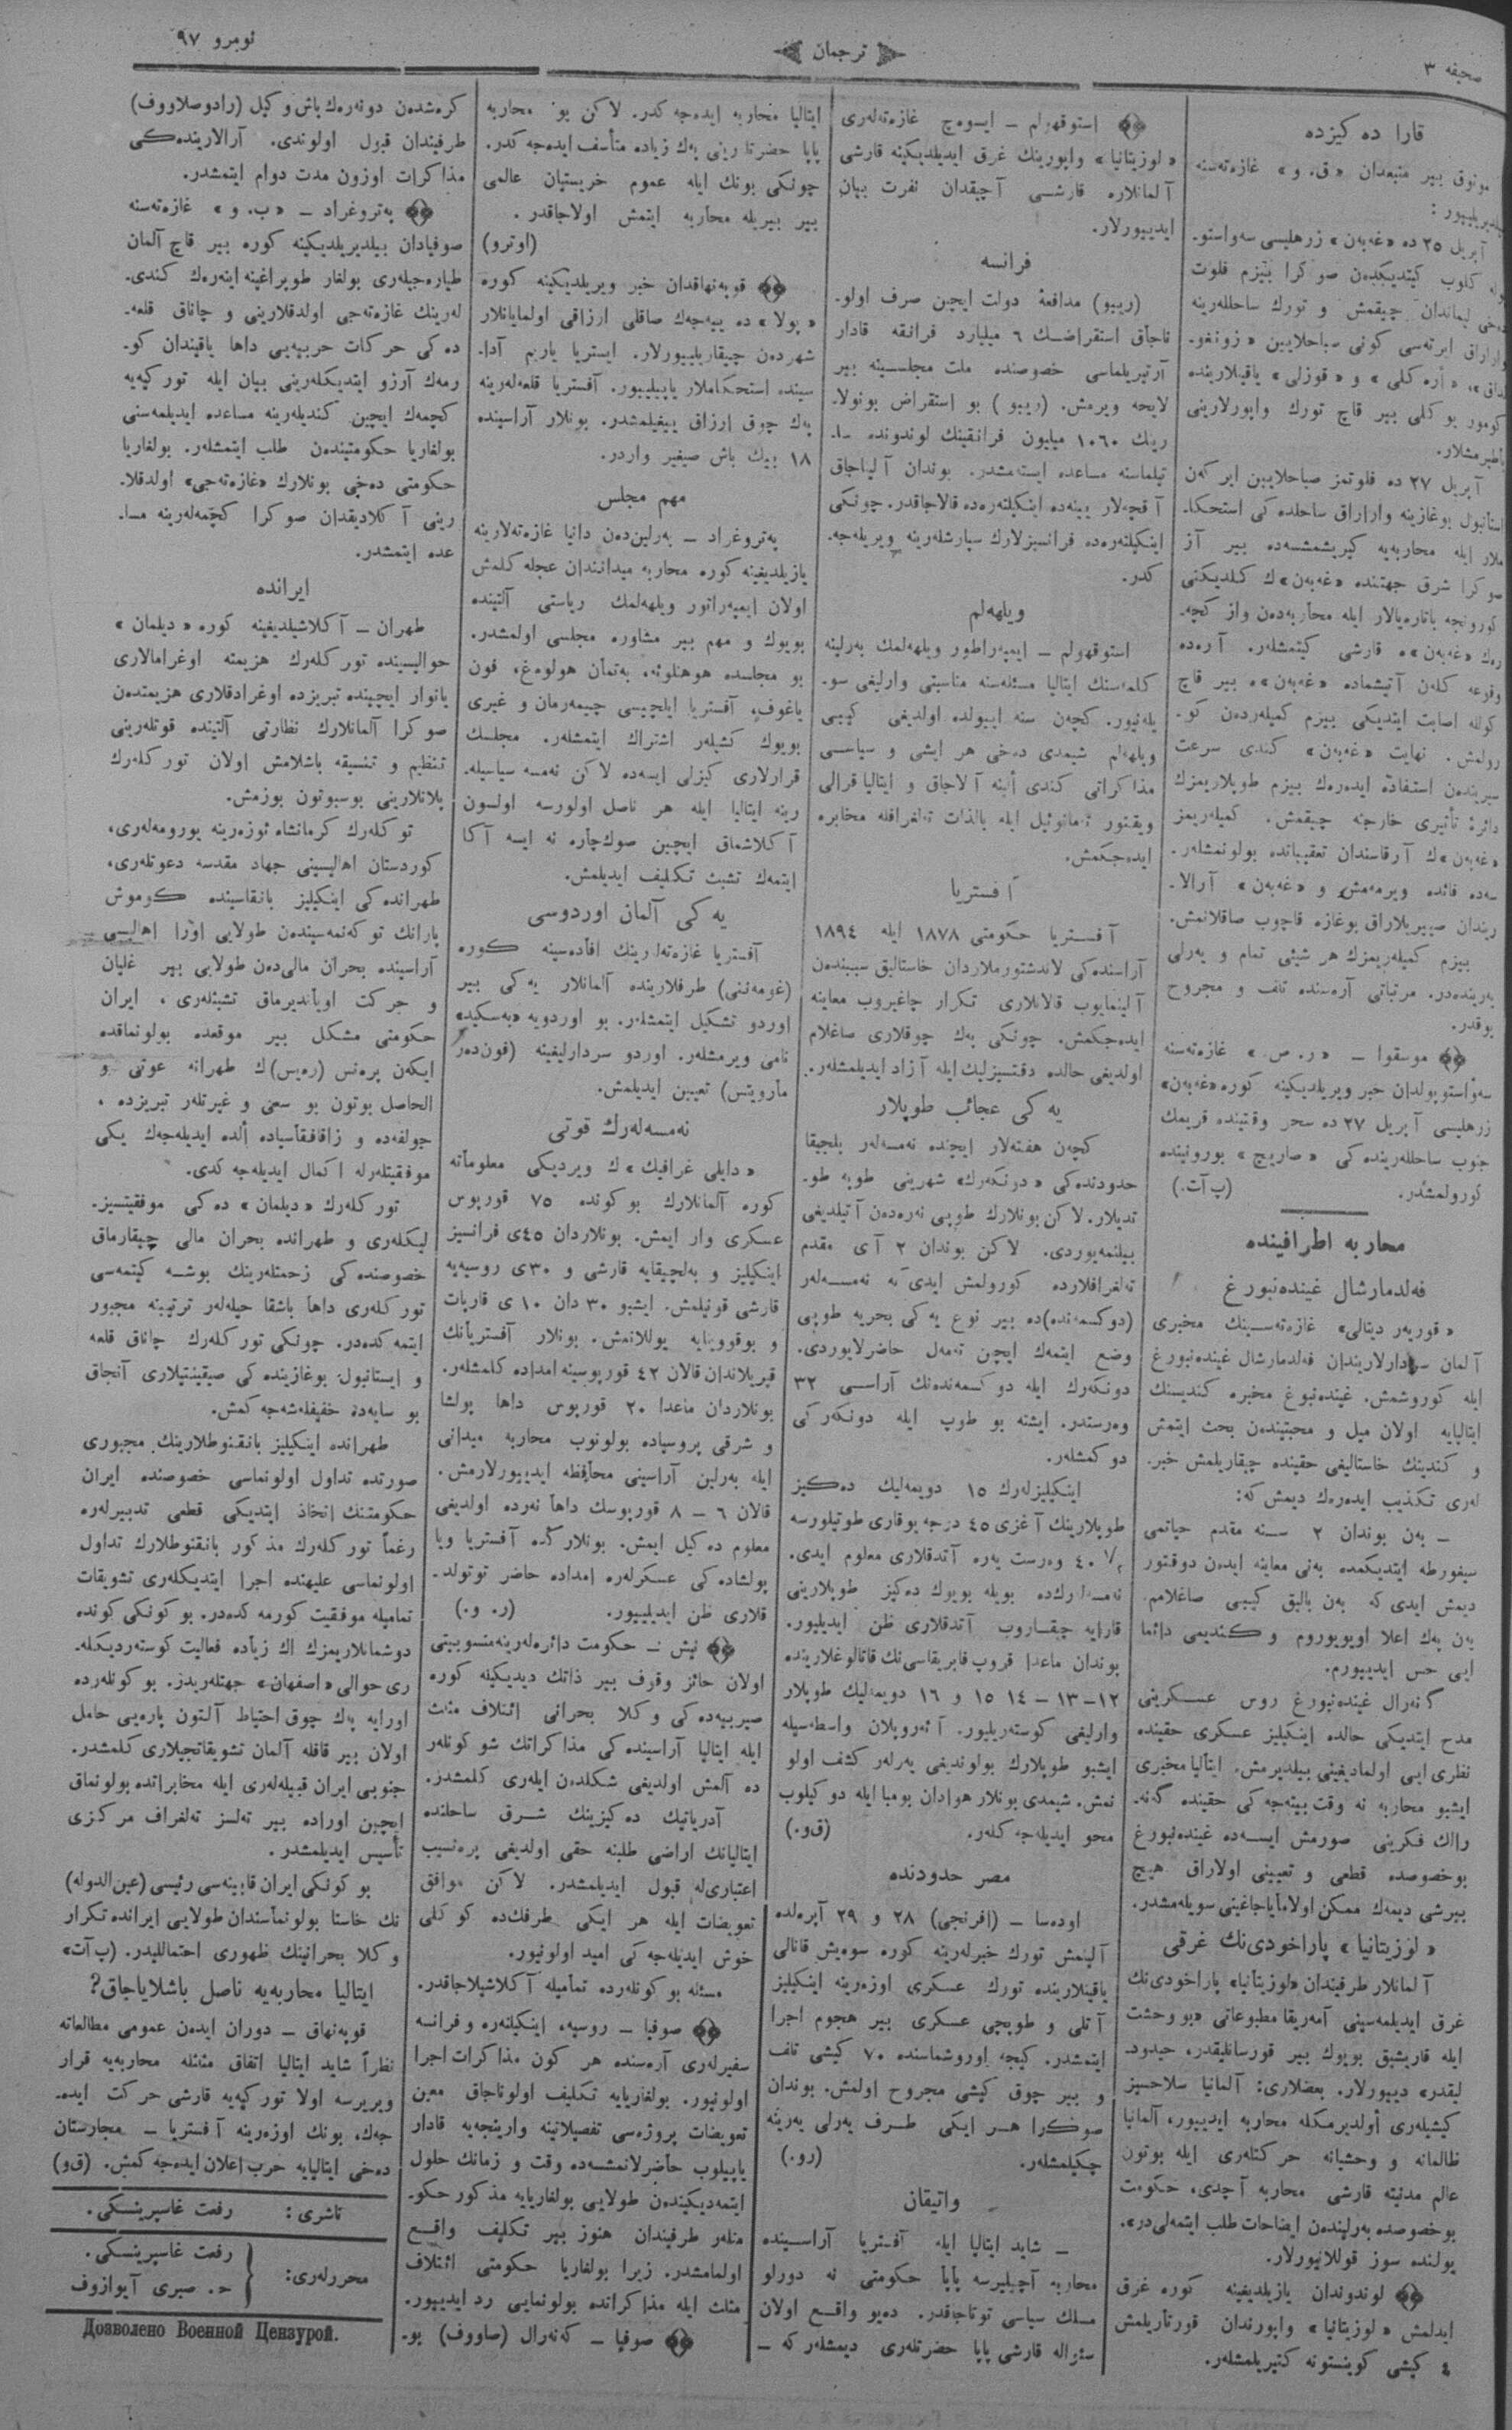 صحیفه ٣
ترجمان
نومرو ٩٧
قارا ده كیزده
موثوق بیر منبعدان «ق. و» غازەتەسنه
آپریل ٢٥ ده «غەبەن» زرهلیسی سەواستو۔
كلوب كیتدیكدەن صوكرا بیزم فلوت
لیماندان چیقمش و تورك ساحللەرینه
كومور یوكلی بیر قاچ تورك واپورلارینی
باطیرمشلار.
آپریل ٢٧ ده فلوتمز صباحلایین ایركەن
استانبول بوغازینه واراراق ساحلده كی استحكا۔
ملار ایله محاربەیه كیریشمشسەده بیر آز
صوكرا شرق جهتنده «غەبەن»ك كلدیكنی
كورونجه باتارەیالار ایله محاربەدەن واز كچه۔
رەك «غەبەن»ه قارشی كیتمشلەر. آرەده
وقوعه كلەن آتیشماده «غەبەن»ه بیر قاچ
كولله اصابت ایتدیكی بیزم كمیلەردەن كو۔
رولمش. نهایت «غەبەن» كندی سرعت
سیریندەن استفاده ایدەرەك بیزم طوپلاریمزك
دائرۀ تأثیری خارجنه چیقمش. كمیلەریمز
«غەبەن»ك آرقاسندان تعقیباتده بولونمشلەر۔
سەده فائده ویرمەمش و «غەبەن» آرالا۔
ریندان صییریلاراق بوغازه قاچوب صاقلانمش.
بیزم كمیلەریمزك هر شیئی تمام و یەرلی
یەریندەدر. مرتباتی آرەسنده تلف و مجروح
یوقدر.
موسقوا – «ر. ص.» غازەتەسنه
سەواستوپولدان خبر ویریلدیكینه كوره «غەبەن»
زرهلیسی آپریل ٢٧ ده سحر وقتینده قریمك
جنوب ساحللەرینده كی «صاریچ» بورونینده
كورولمشدر. (پ آت.)
محاربه اطرافینده
فەلدمارشال غیندەنبورغ
«قوریەر دیتالی» غازەتەسینك مخبری
آلمان سردارلاریندان فەلدمارشال غیندەنبورغ
ایله كوروشمش. غیندەنبوغ مخبره كندیسنك
ایتالیایه اولان میل و محبتیندەن بحث ایتمش
و كندینك خاستالیغی حقینده چیقاریلمش خبر۔
لەری تكذیب ایدەرەك دیمش كه:
– بەن بوندان ٢ سنه مقدم حیاتمی
سیغورطه ایتدیكمده بەنی معاینه ایدەن دوقتور
دیمش ایدی كه بەن بالیق كیبی صاغلامم.
بەن پەك اعلا اویویوروم و كندیمی دائما
ایی حس ایدییورم.
گەنەرال غیندەنبورغ روس عسكرینی
مدح ایتدیكی حالده اینكیلیز عسكری حقینده
نظری ایی اولمادیغینی بیلدیرمش. ایتالیا مخبری
ایشبو محاربه نه وقت بیتەجه كی حقینده گەنە۔
رالك فكرینی صورمش ایسەده غیندەنبورغ
بوخصوصده قطعی و تعیینی اولاراق هیچ
بیرشی دیمەك ممكن اولامایاجاغینی سویلەمشدر.
«لوزیتانیا» پاراخودی‌نك غرقی
آلمانلار طرفیندان «لوزیتانیا» پاراخودی‌نك
غرق ایدیلمەسینی آمەریقا مطبوعاتی «بو وحشت
ایله قاریشیق بویوك بیر قورسانلیقدر، حیدود۔
لیقدر» دییورلار. بعضلاری: آلمانیا سلاحسیز
كیشیلەری أولدیرمكله محاربه ایدییور، آلمانیا
ظالمانه و وحشیانه حركتلەری ایله بوتون
عالم مدنیته قارشی محاربه آچدی، حكومت
بوخصوصده بەرلیندەن ایضاحات طلب ایتمەلی‌در».
یولنده سوز قوللانیورلار.
لوندوندان یازیلدیغینه كوره غرق
ایدلمش «لوزیتانیا» واپورندان قورتاریلمش
٤ كیشی كوینستونه كتیریلمشلەر.
استوقهولم – ایسوەچ غازەتەلەری
«لوزیتانیا» واپورینك غرق ایدیلدیكینه قارشی
آلمانلاره قارشی آچیقدان نفرت بیان
ایدییورلار.
فرانسه
(ریبو) مدافعۀ دولت ایچین صرف اولو۔
ناجاق استقراضك ٦ میلیارد فرانقه قادار
آرتیریلماسی خصوصنده ملت مجلسینه بیر
لایحه ویرمش. (ریبو) بو استقراض بونولا۔
رینك ١٠٦٠ میلیون فرانقینك لوندونده سا۔
تیلماسنه مساعده ایستەمشدر. بوندان آلیناجاق
آقچەلار یینەده اینكیلتەرەده قالاجاقدر. چونكی
اینكیلتەرەده فرانسیزلارك سپارشلەرینه ویریلەجه۔
كدر.
ویلهەلم
استوقهولم – ایمپەراطور ویلهەلمك بەرلینه
كلمەسنك ایتالیا مسئلەسنه مناسبتی وارلیغی سو۔
یلەنیور. كچەن سنه اییولده اولدیغی كیبی
ویلهەلم شیمدی دەخی هر ایشی و سیاسی
مذاكراتی كندی أینه آلاجاق و ایتالیا قرالی
ویقتور ئەمانوئیل ایله بالذات تەلغرافله مخابره
ایدەجكمش.
آفستریا
آفستریا حكومتی ١٨٧٨ ایله ١٨٩٤
آراسنده كی لاندشتورملاردان خاستالیق سببندەن
آلینمایوب قالانلاری تكرار چاغیروب معاینه
ایدەجكمش. چونكی پەك چوقلاری صاغلام
اولدیغی حالده دقتسیزلیك ایله آزاد ایدیلمشلەر.
یه كی عجائب طوپلار
كچەن هفتەلار ایچنده نەمسەلەر بلجیقا
حدودنده كی «دونكەرك» شهرینی طوپه طو۔
تدیلار. لاكن بونلارك طوپی نەرەدەن آتیلدیغی
بیلنمەیوردی. لاكن بوندان ٢ آی مقدم
تەلغرافلارده كورولمش ایدی كه نەمسەلەر
(دوكسمەنده)ده بیر نوع یه كی بحریه طوپی
وضع ایتمەك ایچن تەمەل حاضرلایوردی.
دونكەرك ایله دوكسمەندەنك آراسی ٣٢
وەرستدر. ایشته بو طوپ ایله دونكەركی
دوكمشلەر.
اینكیلیزلەرك ١٥ دویمەلیك دەكیز
طوپلارینك آغزی ٤٥ درجه یوقاری طوتیلورسه
٤٠ وەرست یەره آتدقلاری معلوم ایدی.
نەمسەلەرك‌ده بویله بویوك دەكیز طوپلارینی
قارایه چیقاروب آتدقلاری ظن ایدیلیور.
بوندان ماعدا قروپ فابریقاسی‌نك قاتالوغلارینده
١٢–١٣–١٤ ١٥ و ١٦ دویمەلیك طوپلار
وارلیغی كوستەریلیور. آئەروپلان واسطەسیله
ایشبو طوپلارك بولوندیغی یەرلەر كشف اولو
نمش. شیمدی بونلار هوادان بومبا ایله دوكیلوب
محو ایدیلەجه كلەر. (ق‌و.)
مصر حدودنده
اودەسا – (افرنجی) ٢٨ و ٢٩ آپرەلده
آلینمش تورك خبرلەرینه كوره سوەیش قانالی
یاقینلارینده تورك عسكری اوزەرینه اینكیلیز
آتلی و طوپچی عسكری بیر هجوم اجرا
ایتمشدر. كیجه اوروشماسنده ٧٠ كیشی تلف
و بیر چوق كیشی مجروح اولمش. بوندان
صوكرا هر ایكی طرف یەرلی یەرینه
چكیلمشلەر. (رو.)
واتیقان
– شاید ایتالیا ایله آفستریا آراسینده
محاربه آچیلیرسه پاپا حكومتی نه دورلو
مسلك سیاسی توتاجاقدر. دەیو واقع اولان
سئواله قارشی پاپا حضرتلەری دیمشلەر كه –
ایتالیا محاربه ایدەجه كدر. لاكن بو محاربه
پاپا حضرتلارینی پەك زیاده متأسف ایدەجه كدر.
چونكی بونك ایله عموم خریستیان عالمی
بیر بیریله محاربه ایتمش اولاجاقدر.
(اوترو)
قوپەنهاقدان خبر ویریلدیكینه كوره
«پولا» ده ییەجەك صاقلی ارزاقی اولمایانلار
شهردەن چیقاریلییورلار. ایستریا یاریم آدا۔
سینده استحكاملار یاپیلییور. آفستریا قلعەلەرینه
پەك چوق ارزاق ییغیلمشدر. بونلار آراسینده
١٨ بیك باش صیغیر واردر.
مهم مجلس
پەتروغراد – بەرلین‌دەن دانیا غازەتەلارینه
یازیلدیغینه كوره محاربه میدانندان عجله كلمش
اولان ایمپەراتور ویلهەلمك ریاستی آلتینده
بویوك و مهم بیر مشاوره مجلسی اولمشدر.
بو مجلسده هوهنلوئه، بەتمان هولوەغ، فون
یاغوف، آفستریا ایلچیسی چیمەرمان و غیری
بویوك كشیلەر اشتراك ایتمشلەر. مجلسك
قرارلاری كیزلی ایسەده لاكن نەمسه سیاسیلە۔
رینه ایتالیا ایله هر ناصل اولورسه اولسون
آكلاشماق ایچین صوك‌چاره نه ایسه آكا
ایتمەك تشبث تكلیف ایدیلمش.
یه كی آلمان اوردوسی
آفستریا غازەتەلرینك افادەسینه كوره
(غومەننی) طرفلارینده آلمانلار یه كی بیر
اوردو تشكیل ایتمشلەر. بو اوردویه «بەسكید»
نامی ویرمشلەر. اوردو سردارلیغینه (فون‌دەر
مارویتس) تعیین ایدیلمش.
نەمسەلەرك قوتی
«دایلی غرافیك»ك ویردیكی معلوماته
كوره آلمانلارك بوكونده ٧٥ قورپوس
عسكری وار ایمش. بونلاردان ٤٥ی فرانسیز
اینكیلیز و بەلچیقایه قارشی و ٣٠ی روسیەیه
قارشی قوئیلمش. ایشبو ٣٠ دان ١٠ ی قارپات
و بوقووینایه یوللانمش. بونلار آفستریانك
قیریلاندان قالان ٤٢ قورپوسینه امداده كلمشلەر.
بونلاردان ماعدا ٢٠ قورپوس داها پولشا
و شرقی پروسیاده بولونوب محاربه میدانی
ایله بەرلین آراسینی محافظه ایدییورلارمش.
قالان ٦ – ٨ قورپوسك داها نەرده اولدیغی
معلوم دەكیل ایمش. بونلارگده آفستریا ویا
پولشاده كی عسكرلەره امداده حاضر توتولد۔
قلاری ظن ایدیلییور. (ر. و.)
نیش – حكومت دائرەلەرینه منسوبیتی
اولان حائز وقوف بیر ذاتك دیدیكینه كوره
صیربیەده كی وكلا بحرانی ائتلاف مثلث
ایله ایتالیا آراسینده كی مذاكراتك شو كونلەر
ده آلمش اولدیغی شكلدەن ایلەری كلمشدر.
آدریاتیك دەكیزینك شرق ساحلنده
ایتالیانك اراضی طلبنه حقی اولدیغی پرەنسیب
اعتباریله قبول ایدیلمشدر. لاكن موافق
تعویضات ایله هر ایكی طرفك‌ده كوكلی
خوش ایدیلەجه كی امید اولونیور.
مسئله بو كونلەرده تمامیله آكلاشیلاجاقدر.
صوفیا – روسیه، اینكیلتەره و فرانسه
سفیرلەری آرەسنده هر كون مذاكرات اجرا
اولونیور. بولغاریایه تكلیف اولوناجاق معین
تعویضات پروژەسی تفصیلاتینه وارینجەیه قادار
یاپیلوب حاضرلانمشسەده وقت و زمانك حلول
ایتمەدیكیندەن طولایی بولغاریایه مذكور حكو۔
متلەر طرفیندان هنوز بیر تكلیف واقع
اولمامشدر. زیرا بولغاریا حكومتی ائتلاف
مثلث ایله مذاكراتده بولونمایی رد ایدییور.
صوفیا – كەنەرال (صاووف) بو۔
كرەشدەن دونەرەك باش وكیل (رادوصلاووف)
طرفیندان قبول اولوندی. آرالاریندەكی
مذاكرات اوزون مدت دوام ایتمشدر.
پەتروغراد – «ب. و» غازەتەسنه
صوفیادان بیلدیریلدیكینه كوره بیر قاچ آلمان
طیارەجیلەری بولغار طوپراغینه اینەرەك كندی۔
لەرینك غازەتەجی اولدقلارینی و چاناق قلعه۔
ده كی حركات حربیەیی داها یاقیندان كو۔
رمەك آرزو ایتدیكلەرینی بیان ایله توركیەیه
كچمەك ایچین كندیلەرینه مساعده ایدیلمەسنی
بولغاریا حكومتیندەن طلب ایتمشلەر. بولغاریا
حكومتی دەخی بونلارك «غازەتەجی» اولدقلا۔
رینی آكلادیقدان صوكرا كچمەلەرینه مسا۔
عده ایتمشدر.
ایرانده
طهران – آكلاشیلدیغینه كوره «دیلمان»
حوالیسینده توركلەرك هزیمته اوغرامالاری
یانوار ایچینده تبریزده اوغرادقلاری هزیمتدەن
صوكرا آلمانلارك نظارتی آلتینده قوتلەرینی
تنظیم و تنسیقه باشلامش اولان توركلەرك
پلانلارینی بوسبوتون بوزمش.
توكلەرك كرمانشاه ئوزەرینه یورومەلەری،
كوردستان اهالیسینی جهاد مقدسه دعوتلەری،
طهرانده كی اینكیلیز بانقاسینده كوموش
پارانك توكەنمەسیندەن طولایی اورا اهالیسی
آراسینده بحران مالی‌دەن طولایی بیر غلیان
و حركت اویاندیرماق تشبثلەری، ایران
حكومتی مشكل بیر موقعده بولونماقده
ایكەن پرەنس (رەیس)ك طهرانه عودتی و
الحاصل بوتون بو سعی و غیرتلەر تبریزده،
جولفەده و زاقافقأسیاده ألده ایدیلەجەك یكی
موفقیتلەرله اكمال ایدیلەجه كدی.
توركلەرك «دیلمان» ده كی موفقیتسیز۔
لیكلەری و طهرانده بحران مالی چیقارماق
خصوصنده كی زحمتلەرینك بوشه كیتمەسی
توركلەری داها باشقا حیلەلەر ترتیبینه مجبور
ایتمه كدەدر. چونكی توركلەرك چاناق قلعه
و ایستانبول بوغازینده كی صیقینتیلاری آنجاق
بو سایەده خفیفلەشەجه كمش.
طهرانده اینكیلیز بانقنوطلارینك مجبوری
صورتده تداول اولونماسی خصوصنده ایران
حكومتنك اتخاذ ایتدیكی قطعی تدبیرلەره
رغماً توركلەرك مذكور بانقنوطلارك تداول
اولونماسی علیهنده اجرا ایتدیكلەری تشویقات
تمامیله موفقیت كورمه كدەدر. بو كونكی كونده
دوشمانلاریمزك اك زیاده فعالیت كوستەردیكلە۔
ری حوالی «اصفهان» جهتلەریدر. بو كونلەرده
اورایه پەك چوق احتیاط آلتون پارەیی حامل
اولان بیر قافله آلمان تشویقاتجیلاری كلمشدر.
جنوبی ایران قبیلەلەری ایله مخابراتده بولونماق
ایچین اوراده بیر تەلسز تەلغراف مركزی
تأسیس ایدیلمشدر.
بو كونكی ایران قابینەسی رئیسی (عین‌الدوله)
نك خاستا بولونماسندان طولایی ایرانده تكرار
وكلا بحرانینك ظهوری احتماللیدر. (پ‌آت»
ایتالیا محاربەیه ناصل باشلایاجاق؟
قوپەنهاق – دوران ایدەن عمومی مطالعاته
نظراً شاید ایتالیا اتفاق مثلثله محاربەیه قرار
ویریرسه اولا توركیەیه قارشی حركت ایدە۔
جەك، بونك اوزەرینه آفستریا – مجارستان
دەخی ایتالیایه حرب اعلان ایدەجه كمش. (ق‌و)
ناشری: رفعت غاسپرینسكی.
محررلەری: رفعت غاسپرینسكی.
ح. صبری آیوازوف
Дозволено Военной Цензурой.